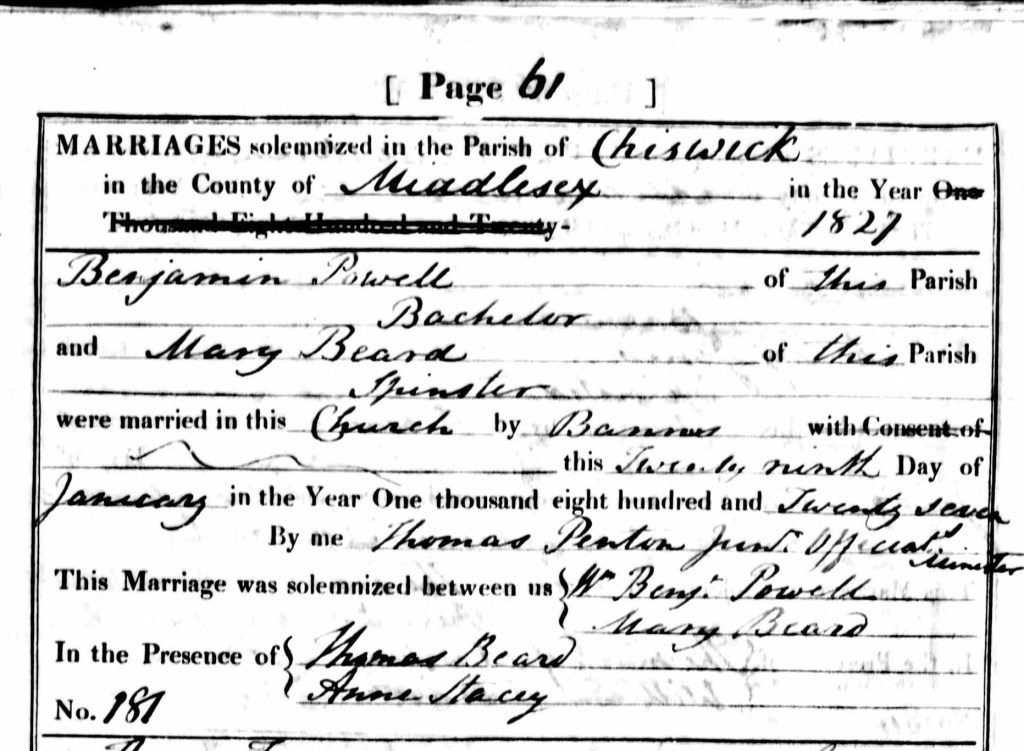 [ Page 61 ]
MARRIAGES solemnized in the Parish of Chiswick
in the County of Middlesex in the Year One
Thousand Eight Hundred and Twenty- 1827
Benjamin Powell of this Parish
Bachelor
and Mary Beard of this Parish
Spinster
were married in this Church by Banns with Consent of
this Twenty ninth Day of
January in the Year One thousand eight hundred and Twenty seven
By me Thomas Penton Junr. Officiatg Minister
This Marriage was solemnized between us { Wm Benjn. Powell
Mary Beard
In the Presence of { Thomas Beard
Anne Stacey
No. 181